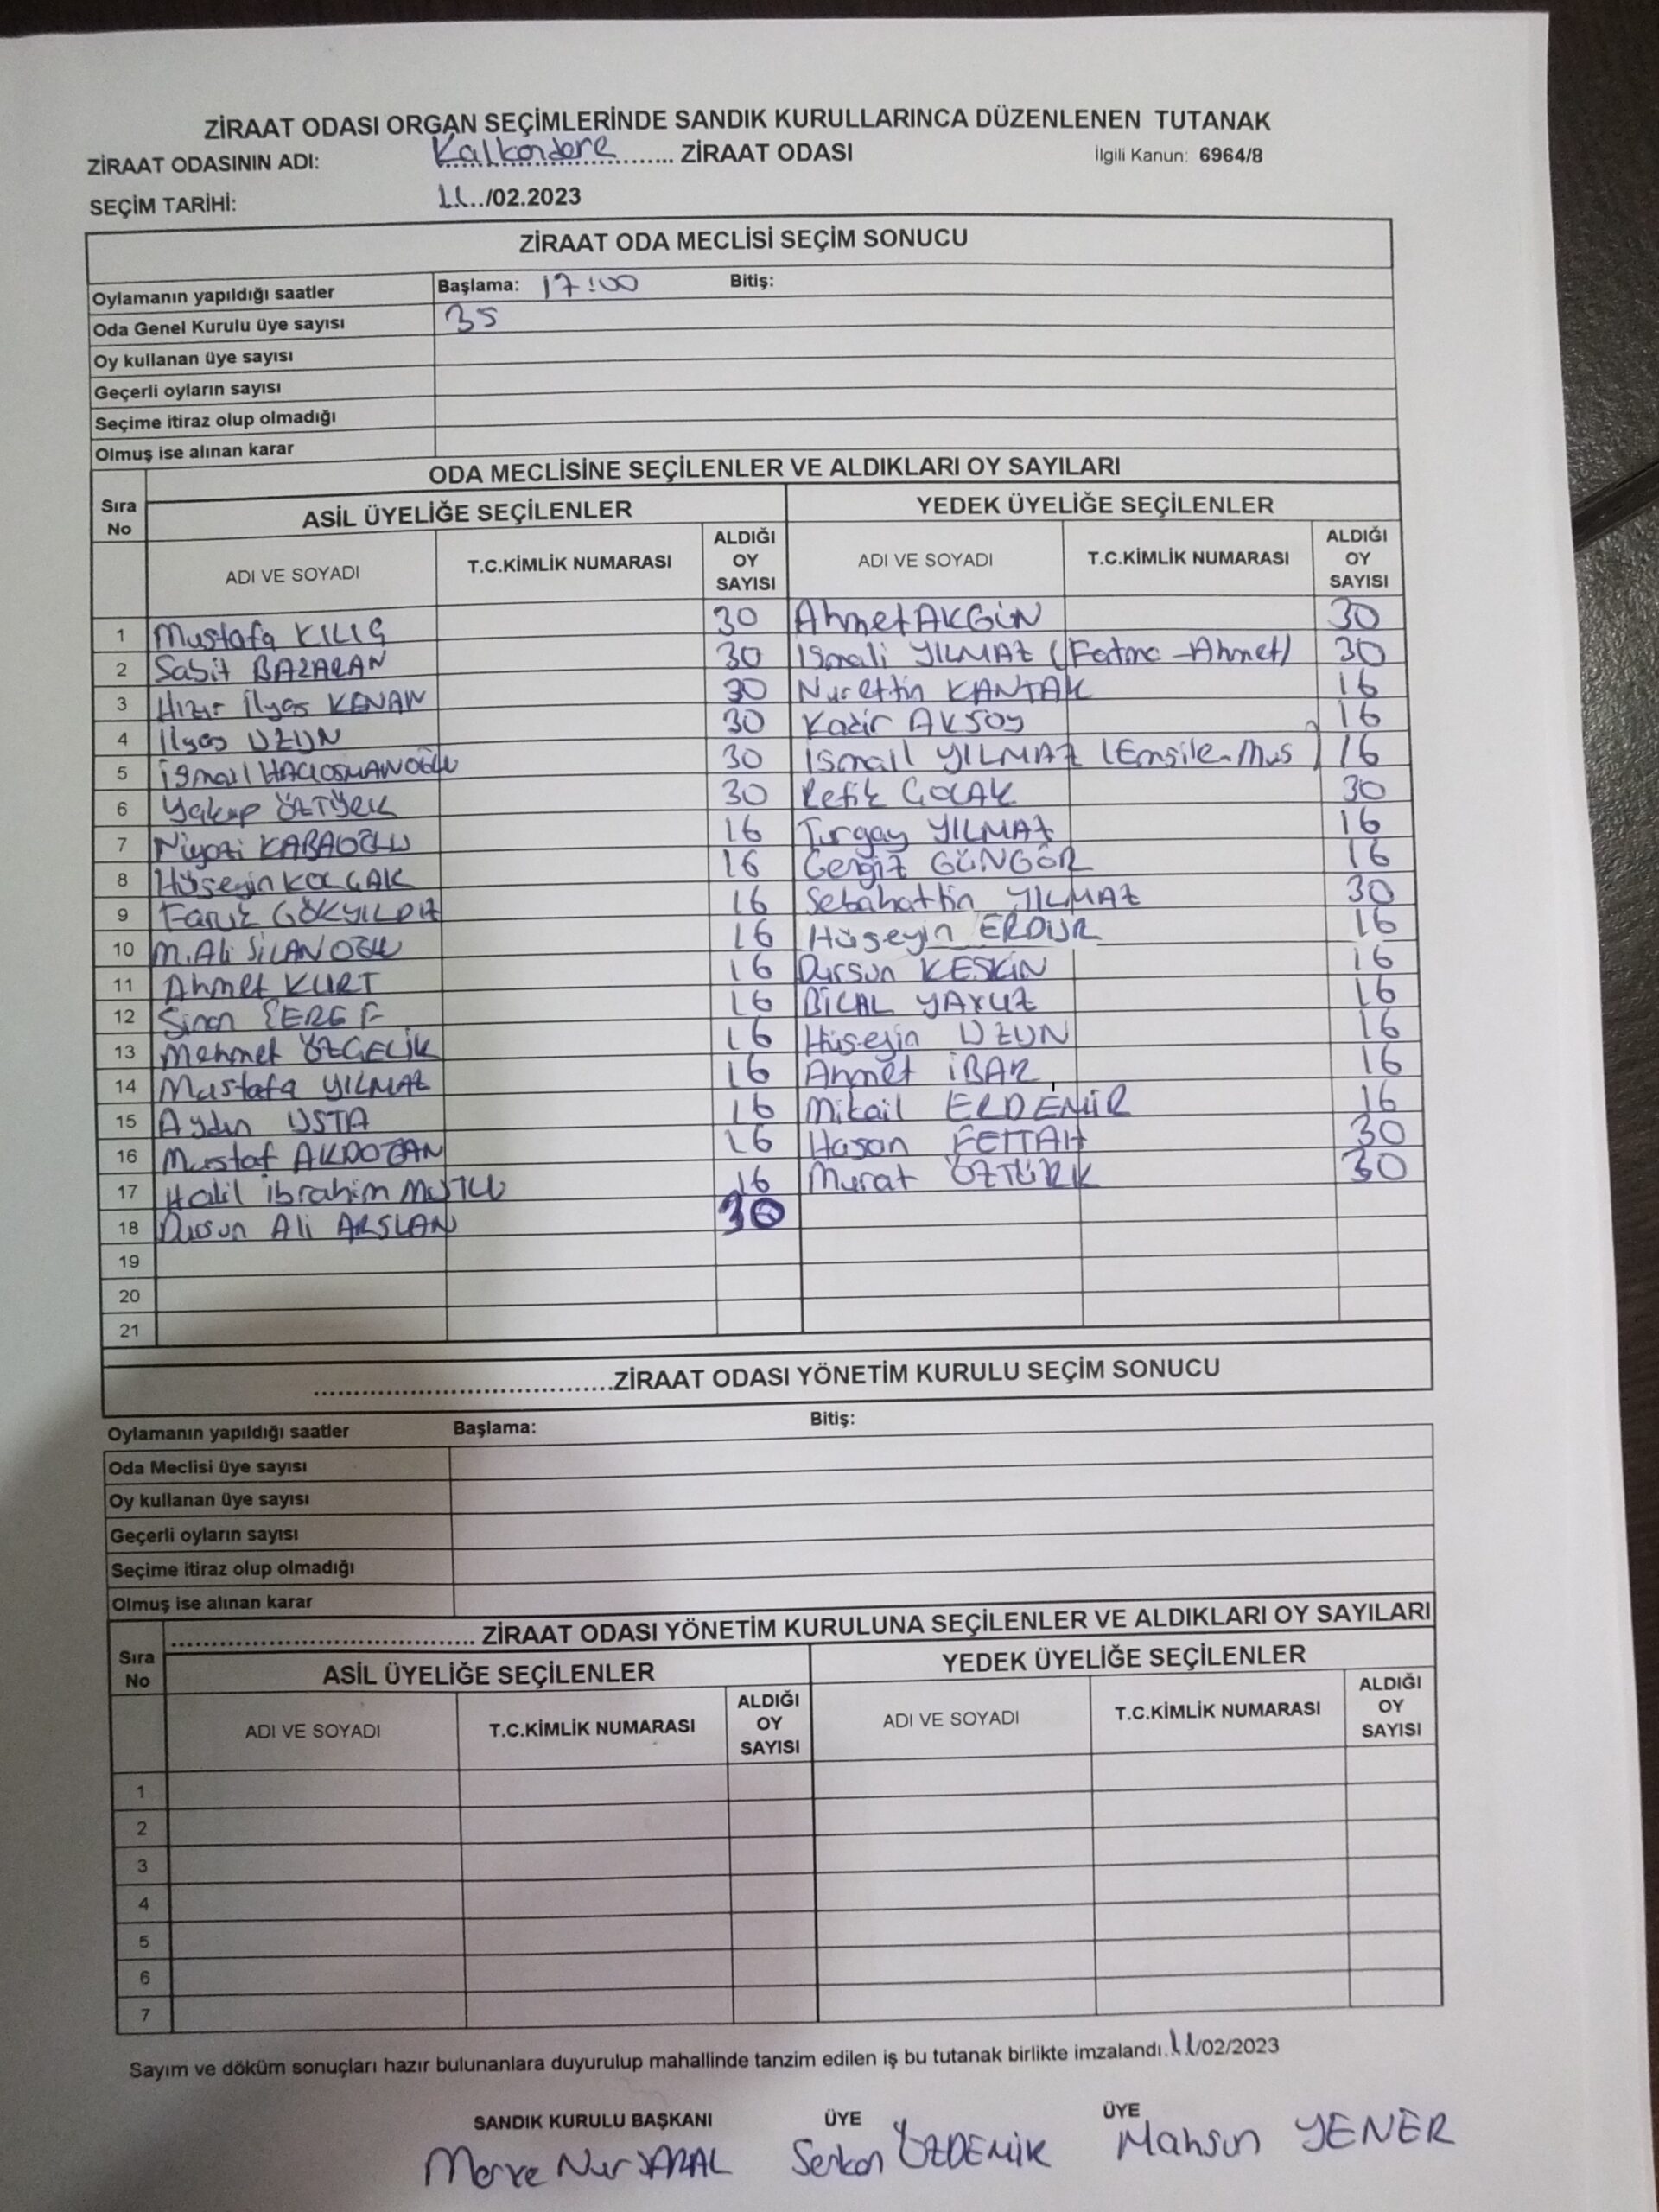 ZİRAAT ODASI ORGAN SEÇİMLERİNDE SANDIK KURULLARINCA DÜZENLENEN TUTANAK
ZİRAAT ODASININ ADI: Kalkandere ZİRAAT ODASI İlgili Kanun: 6964/8
SEÇİM TARİHİ: 11../02.2023
ZİRAAT ODA MECLİSİ SEÇİM SONUCU
Oylamanın yapıldığı saatler Başlama: 17:00 Bitiş:
Oda Genel Kurulu üye sayısı 35
Oy kullanan üye sayısı
Geçerli oyların sayısı
Seçime itiraz olup olmadığı
Olmuş ise alınan karar
ODA MECLİSİNE SEÇİLENLER VE ALDIKLARI OY SAYILARI
Sıra No ASİL ÜYELİĞE SEÇİLENLER YEDEK ÜYELİĞE SEÇİLENLER
ADI VE SOYADI T.C.KİMLİK NUMARASI ALDIĞI OY SAYISI ADI VE SOYADI T.C.KİMLİK NUMARASI ALDIĞI OY SAYISI
1 Mustafa KILIÇ 30 Ahmet AKGİN 30
2 Sabit BAZARAN 30 ISmali YILMAZ (Fatma-Ahmet) 30
3 Hızır İlyas KENAN 30 Nurettin KANTAK 16
4 İlyas UZUN 30 Kadir AKSOY 16
5 İsmail HACIOSMANOĞLU 30 İsmail YILMAZ (Emsile-Mus) 16
6 Yakup ÖZTÜRK 30 Refik ÇOLAK 30
7 Niyazi KABAOĞLU 16 Turgay YILMAZ 16
8 Hüseyin KOLÇAK 16 Cengiz GÜNGÖR 16
9 Faruk GÖKYILDIZ 16 Sebahattin YILMAZ 30
10 M.Ali SİLANOĞLU 16 Hüseyin ERDUR 16
11 Ahmet KURT 16 Dursun KESKİN 16
12 Sinan 16 BİLAL YAVUZ 16
13 Mehmet ÖZÇELİK 16 Hüseyin UZUN 16
14 Mustafa YILMAZ 16 Ahmet İBAR 16
15 Aydın USTA 16 Mikail ERDEMİR 16
16 Mustaf AKDOĞAN 16 Hasan FETTAH 30
17 Halil İbrahim MUTLU 16 Murat ÖZTÜRK 30
18 Dursun Ali ARSLAN 30
19
20
21
......................................ZİRAAT ODASI YÖNETİM KURULU SEÇİM SONUCU
Oylamanın yapıldığı saatler Başlama: Bitiş:
Oda Meclisi üye sayısı
Oy kullanan üye sayısı
Geçerli oyların sayısı
Seçime itiraz olup olmadığı
Olmuş ise alınan karar
...................................... ZİRAAT ODASI YÖNETİM KURULUNA SEÇİLENLER VE ALDIKLARI OY SAYILARI
Sıra No ASİL ÜYELİĞE SEÇİLENLER YEDEK ÜYELİĞE SEÇİLENLER
ADI VE SOYADI T.C.KİMLİK NUMARASI ALDIĞI OY SAYISI ADI VE SOYADI T.C.KİMLİK NUMARASI ALDIĞI OY SAYISI
1
2
3
4
5
6
7
Sayım ve döküm sonuçları hazır bulunanlara duyurulup mahallinde tanzim edilen iş bu tutanak birlikte imzalandı.11/02/2023
SANDIK KURULU BAŞKANI ÜYE ÜYE
Merve Nur Serkan ÖZDEMİR Mahsun YENER